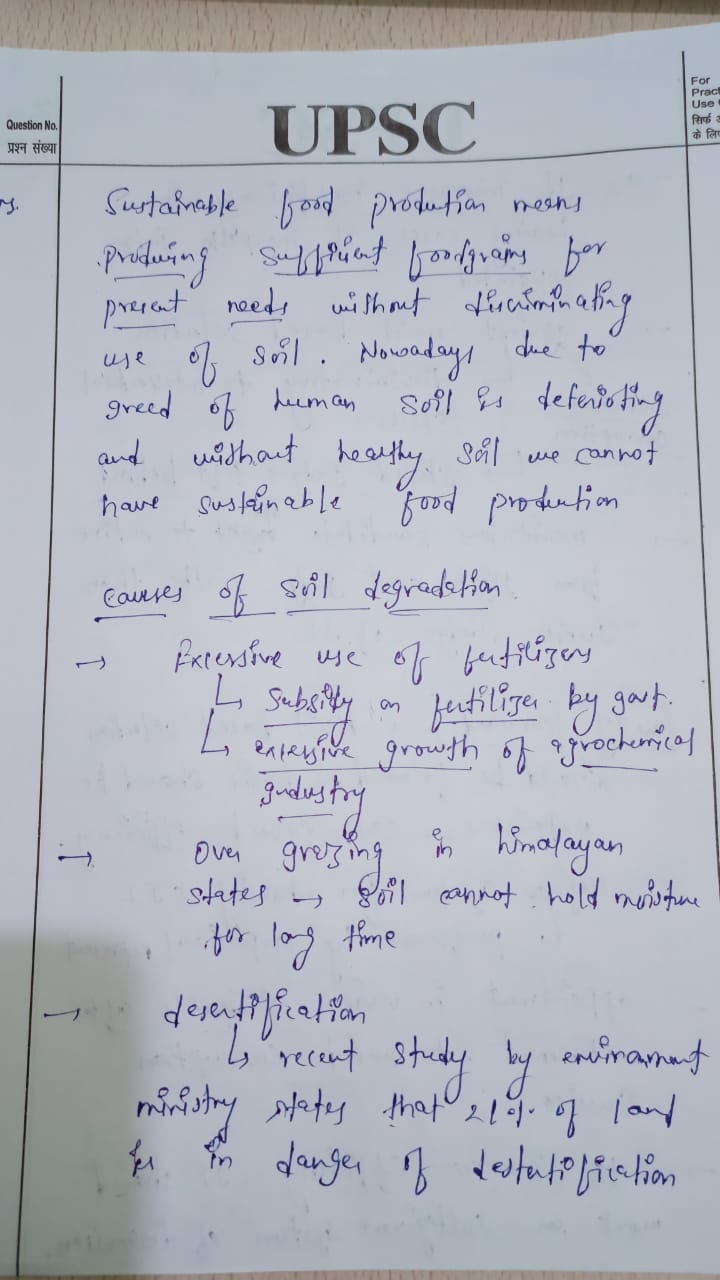 For
Pract
Use
सिर्फ
के लिए
UPSC
Question No.
प्रश्न संख्या
Sustainable food prodution means
produing suffiient foodgrains for
present needs without discriminating
use of soil. Nowadays due to
greed of human soil is deterioting
and without healthy soil we cannot
have sustainable food prodution
causes of soil degradation
→ Excessive use of fertilizers
↳ Subsidy on fertilizer by govt.
↳ excessive growth of agrochemical
industry
→ Over grezing in himalayan
states → soil cannot hold moisture
for long time
→ desertification
↳ recent study by environment
ministry states that 21% of land
is in danger of destertification